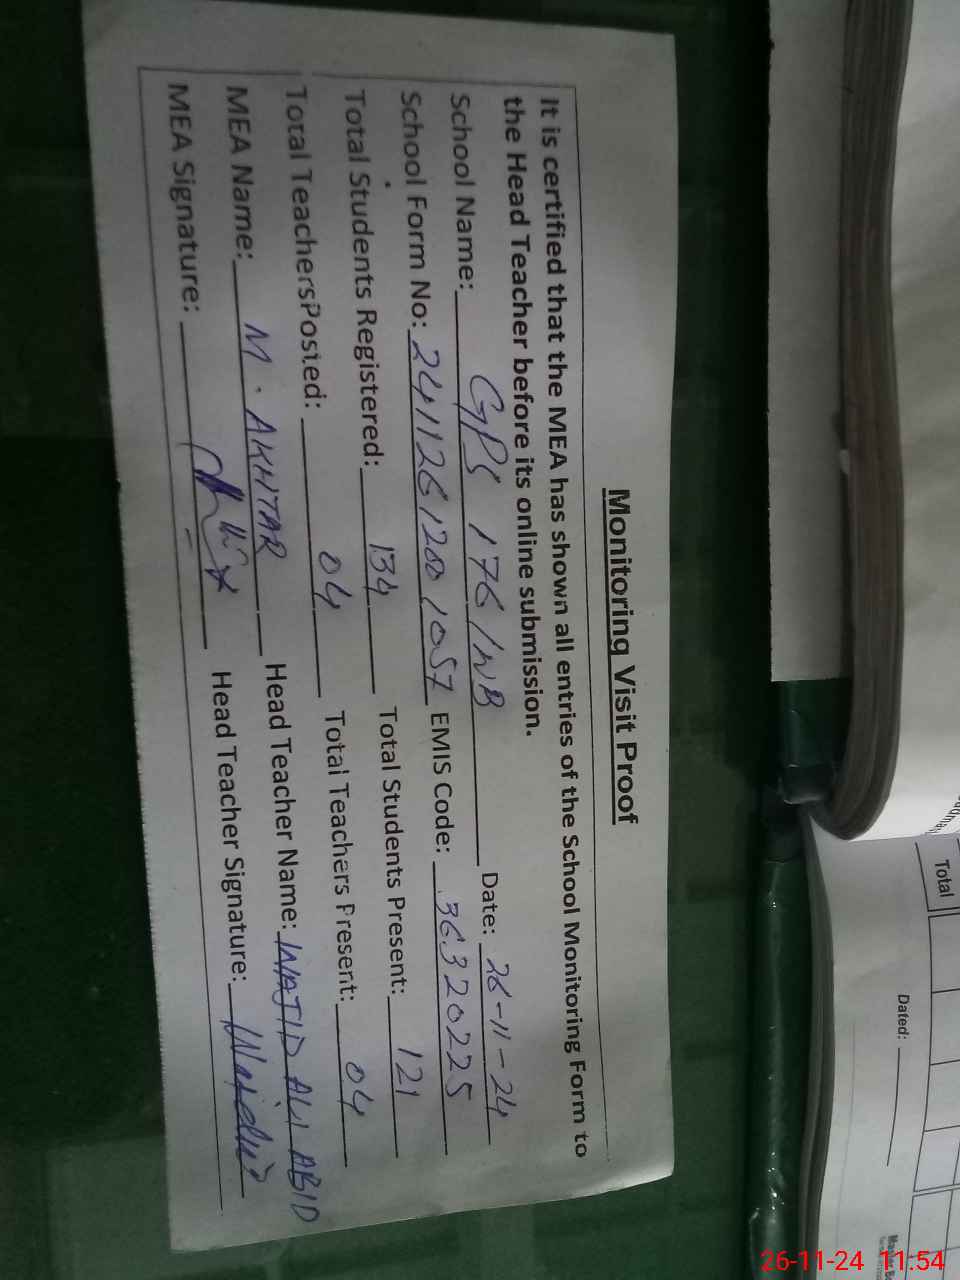 Monitoring Visit Proof
It is certified that the MEA has shown all entries of the School Monitoring Form to
the Head Teacher before its online submission.
School Name: GPS 176/WB Date: 26-11-24
School Form No: 24112612001057 EMIS Code: 36320225
Total Students Registered: 134 Total Students Present: 121
Total TeachersPosted: 04 Total Teachers Present: 04
MEA Name: M. AKHTAR Head Teacher Name: WAJID ALI ABID
MEA Signature: Head Teacher Signature:
Total
Dated:
26-11-24 11:54